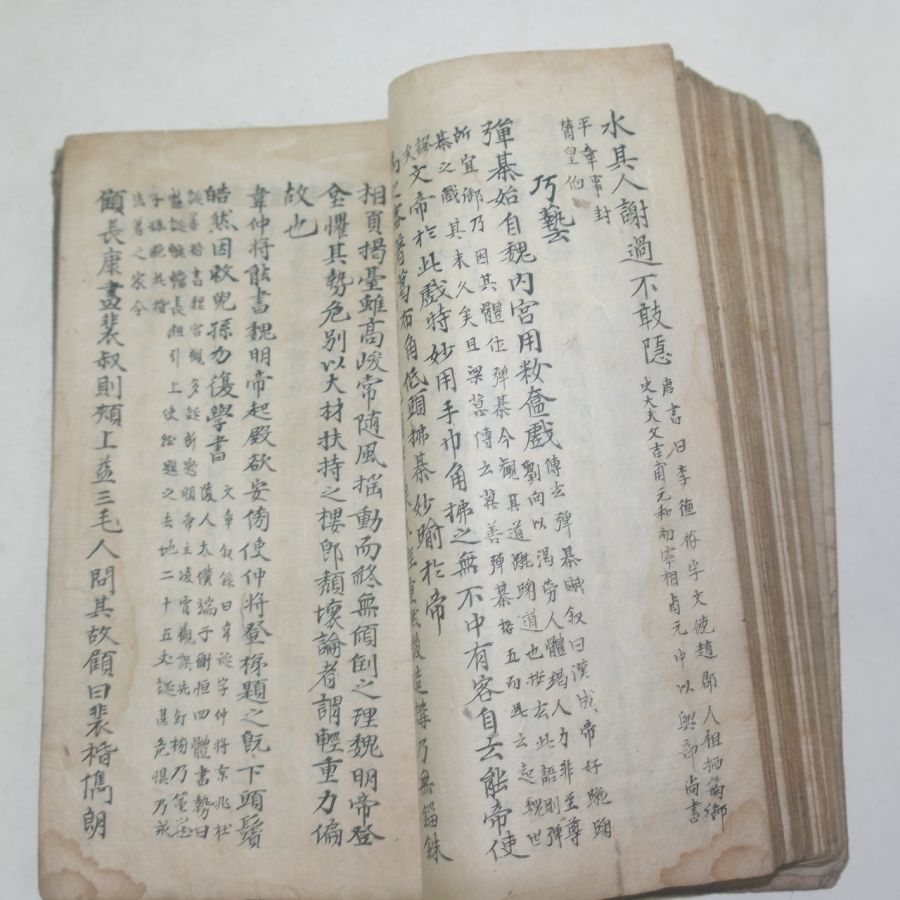 水其人謝過不敢隱
唐書曰李德裕字文饒趙郡人祖栖筠御
史大夫父吉甫元和初宰相貞元中以與部尚書
平章事封
贊皇伯
巧藝
彈棊始自魏內宮用妝奩戲
傅玄彈棊賦叙曰漢成帝好蹴踘
劉向以謂勞人體竭人力非至尊
所宜御乃因其體作彈棊今觀其道蹴踘道也按玄此語則彈
棊之戲其来久矣且梁冀傳云冀善彈棊格五而此云起魏世
謬
矣
文帝於此戲特妙用手巾角拂之無不中有客自云能帝使
為之客著葛巾角低頭拂棊妙踰於帝
後造構乃無錙銖
相負揭臺雖高峻常隨風搖動而終無傾倒之理魏明帝登
臺懼其勢危別以大材扶持之樓即頹壞論者謂輕重力偏
故也
韋仲將能書魏明帝起殿欲安傍使仲將登梯題之既下頭鬢
皓然因敕兒孫勿復學書
文章叙錄曰韋誕字仲將京兆杜
陵人太僕端子衛恒四體書勢曰
誕善楷書魏宮觀多誕所題明帝立凌霄觀誤先釘榜乃籠盛
誕轆轤長絙引上使就題之去地二十五丈誕甚危懼乃戒
子孫絶此楷
法著之家令
顧長康畫裴叔則頰上益三毛人問其故顧曰裴楷儁朗